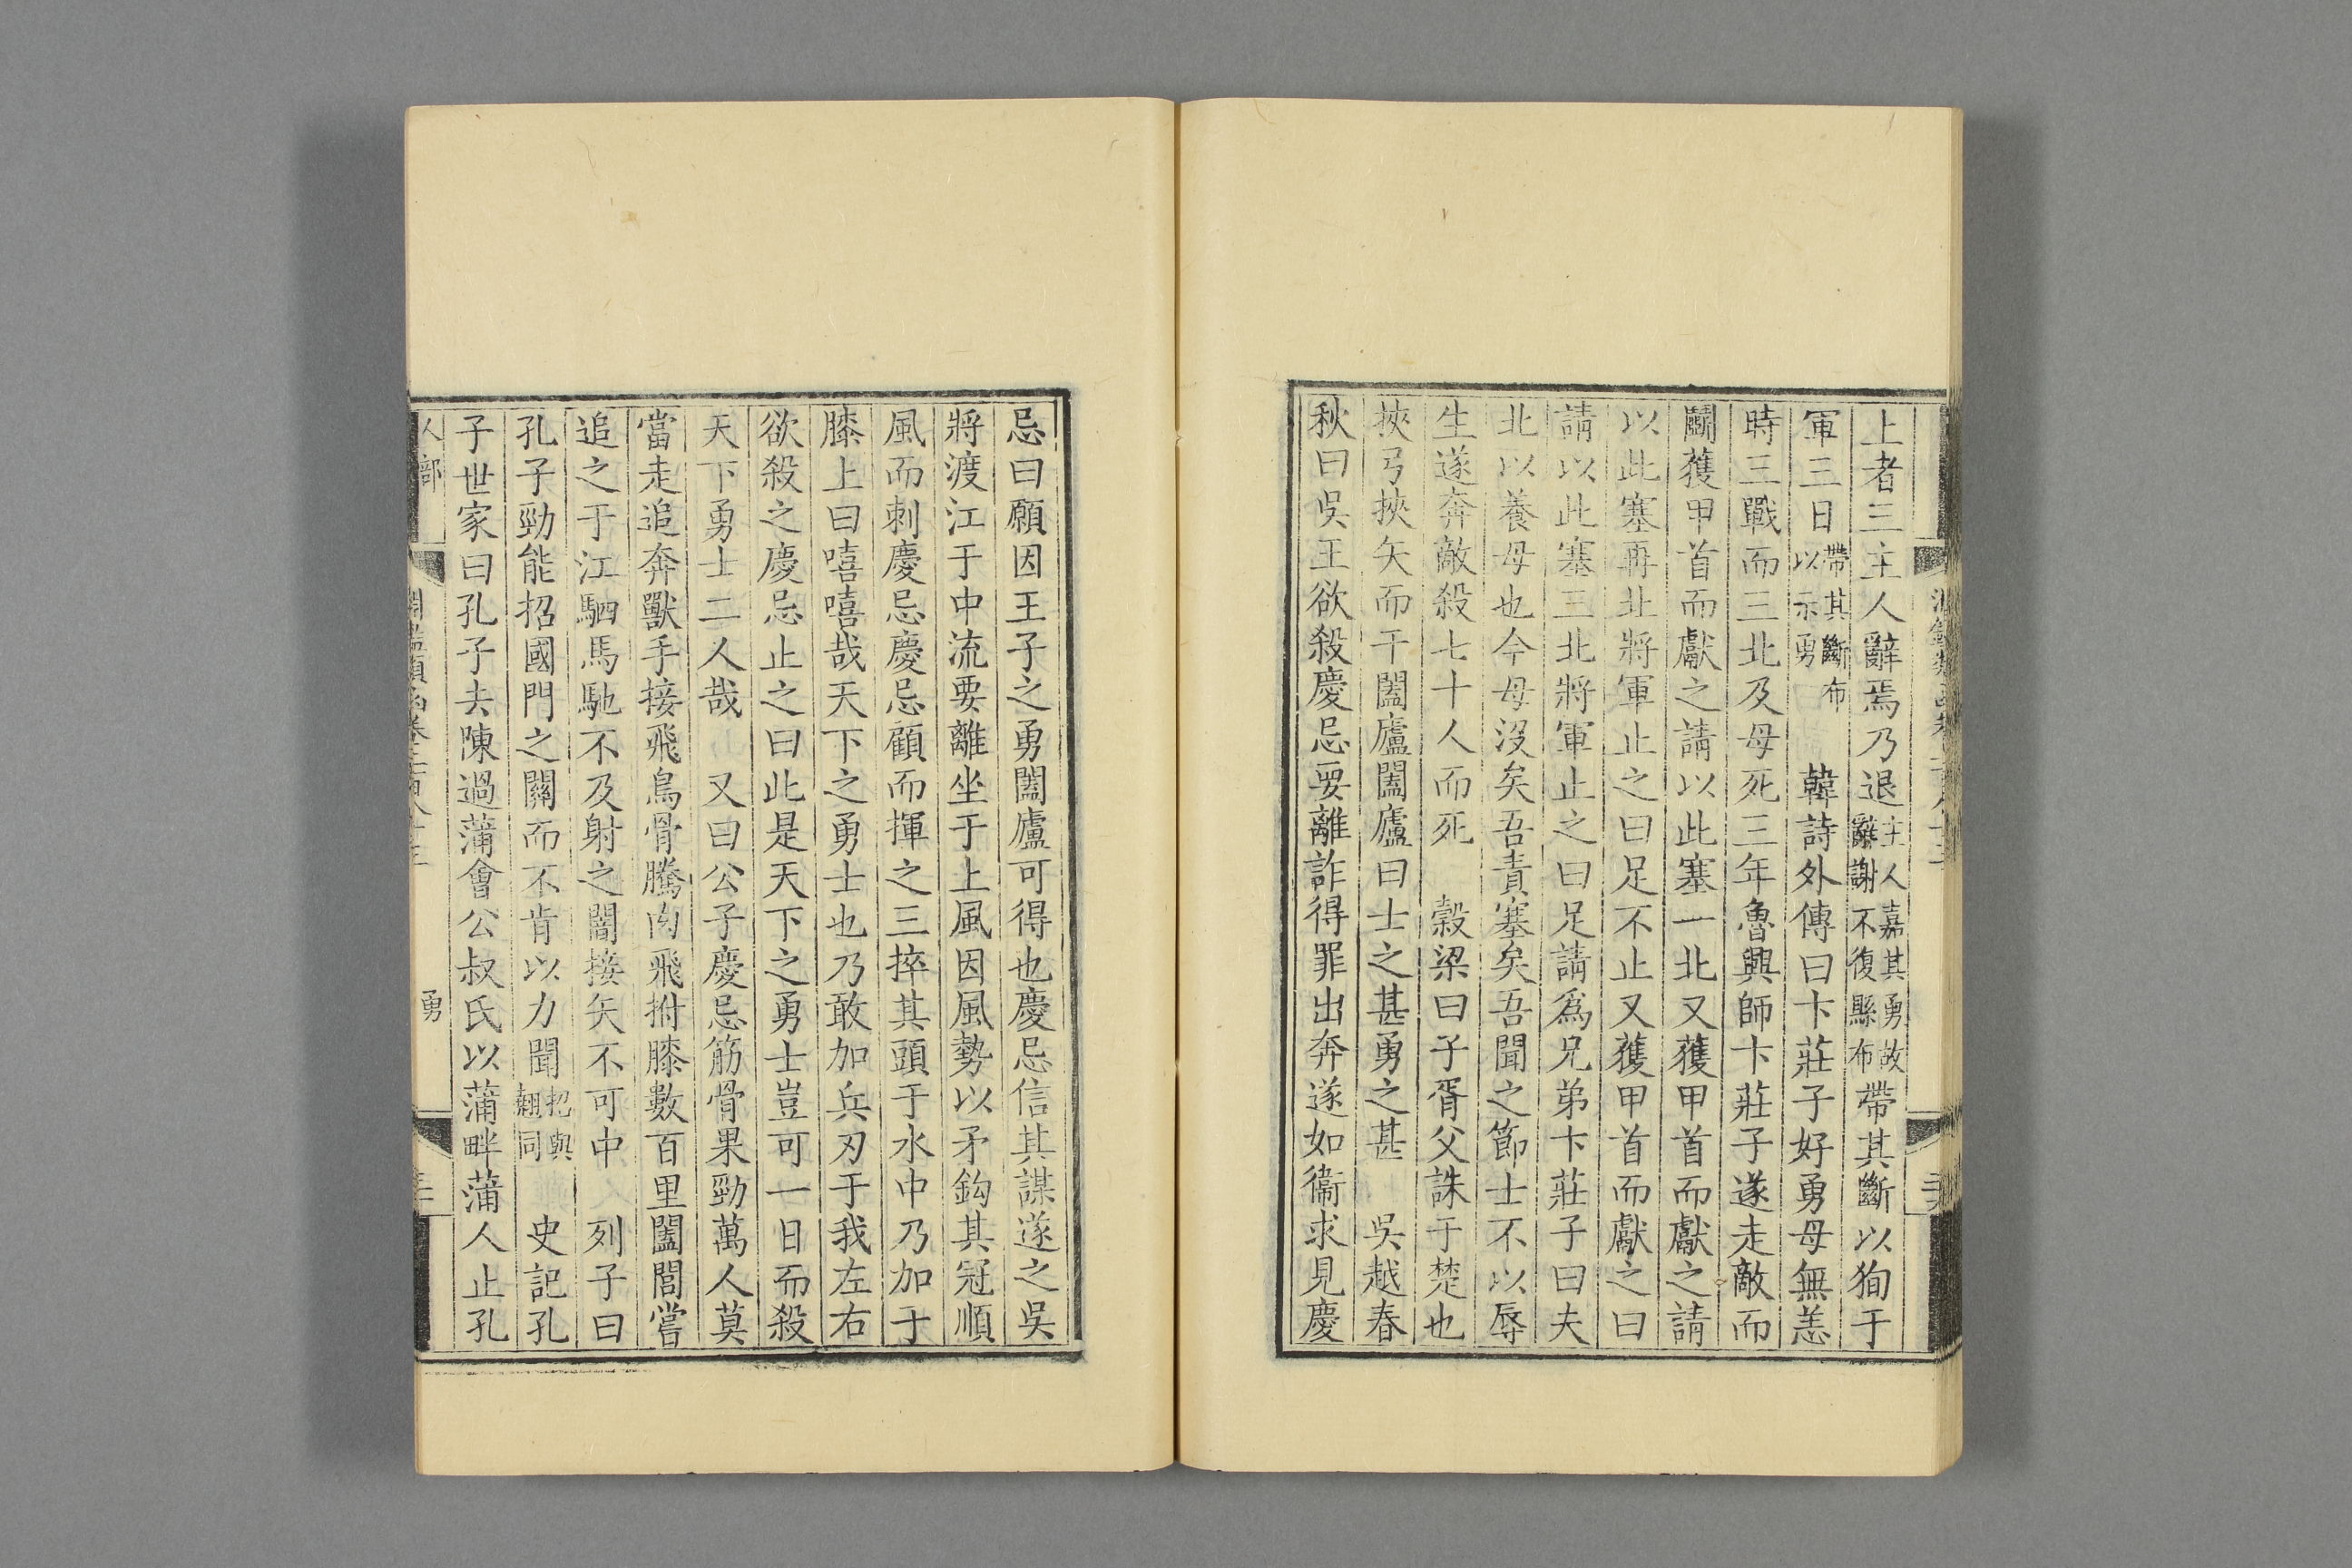 上者三主人辭焉乃退主人嘉其勇故辭謝不復縣布帶其斷以狥于
軍三日帶其斷布以示勇 韓詩外傳曰卞莊子好勇母無恙
時三戰而三北及母死三年魯興師卞莊子遂走敵而
鬭獲甲首而獻之請以此塞一北又獲甲首而獻之請
以此塞再北將軍止之曰足不止又獲甲首而獻之曰
請以此塞三北將軍止之曰足請爲兄弟卞莊子曰夫
北以養母也今母沒矣吾責塞矣吾聞之節士不以辱
生遂奔敵殺七十人而死 穀梁曰子胥父誅于楚也
挾弓挾矢而干闔廬闔廬曰士之甚勇之甚 吳越春
秋曰吳王欲殺慶忌要離詐得罪出奔遂如衞求見慶
忌曰願因王子之勇闔廬可得也慶忌信其謀遂之吳
將渡江于中流要離坐于上風因風勢以矛鈎其冠順
風而刺慶忌慶忌顧而揮之三捽其頭于水中乃加于
膝上曰嘻嘻哉天下之勇士也乃敢加兵刃于我左右
欲殺之慶忌止之曰此是天下之勇士豈可一日而殺
天下勇士二人哉 又曰公子慶忌筋骨果勁萬人莫
當走追奔獸手接飛鳥骨騰肉飛拊膝數百里闔閭嘗
追之于江駟馬馳不及射之闇接矢不可中 列子曰
孔子勁能招國門之關而不肯以力聞招與翹同 史記孔
子世家曰孔子去陳過蒲會公叔氏以蒲畔蒲人止孔
人部
淵鑑類函卷二百八十三
勇